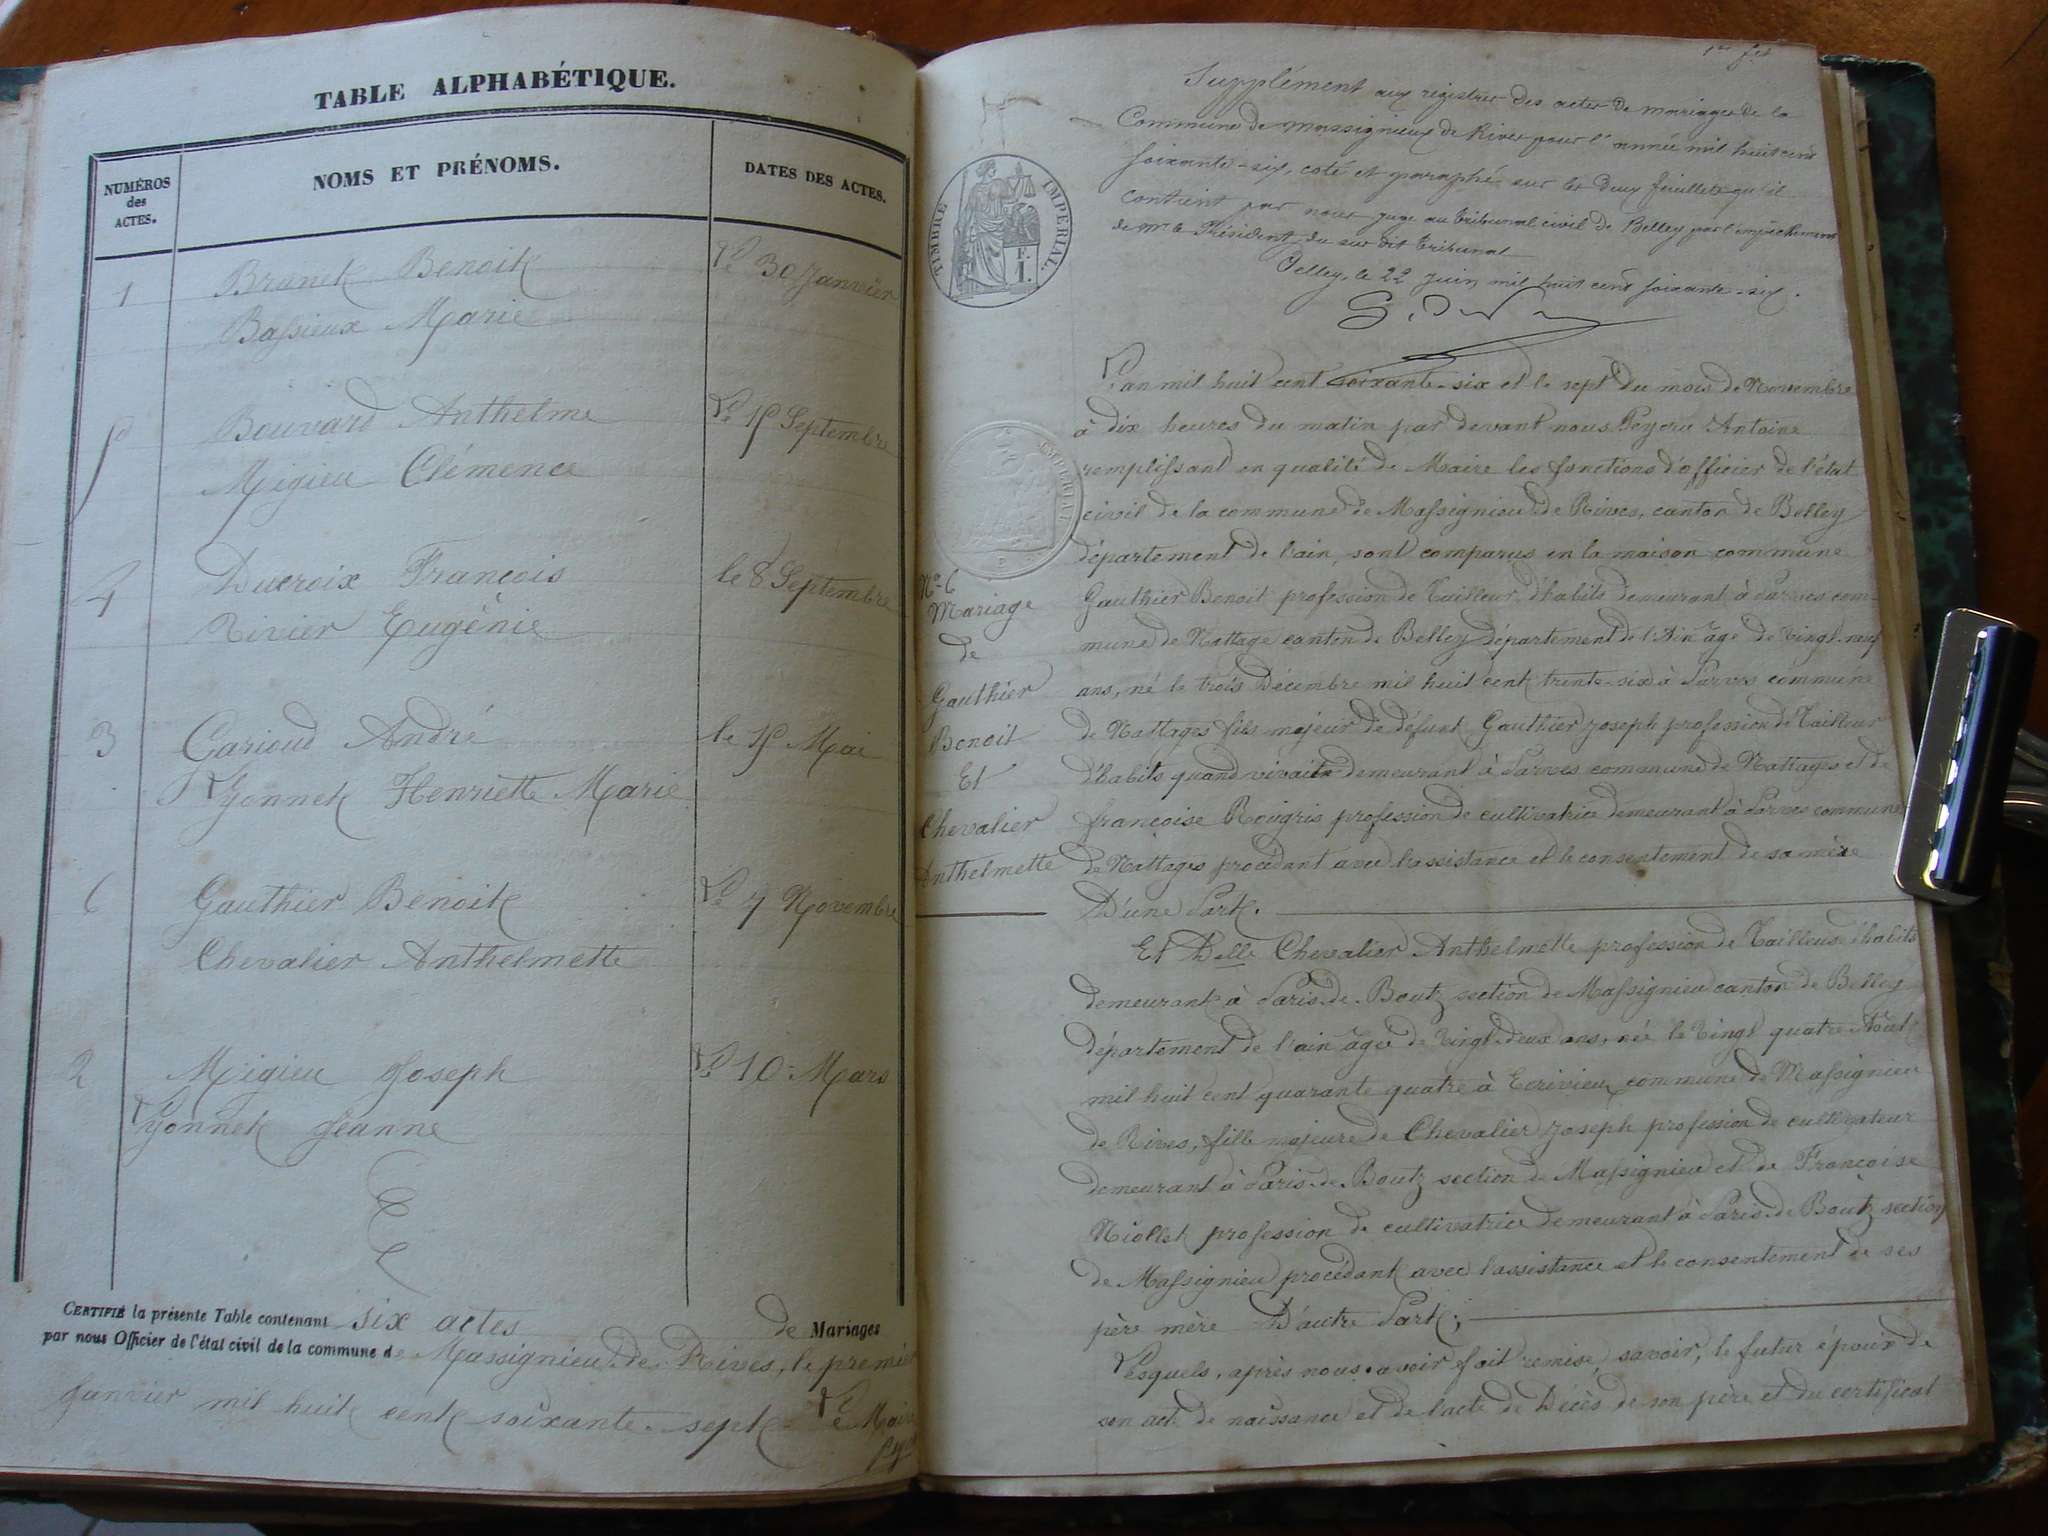 TABLE ALPHABÉTIQUE.
NUMÉROS des ACTES.
NOMS ET PRÉNOMS.
DATES DES ACTES.
1 Brunet Benoit Le 30 Janvier
Bassieux Marie
5 Bouvard Anthelme Le 15 Septembre
Migieu Clémence
4 Ducroix François le 8 Septembre
Rivier Eugénie
3 Carioud André le 15 Mai
Yonnet Henriette Marie
6 Gauthier Benoit Le 7 Novembre
Chevalier Anthelmette
2 Migieu Joseph Le 10 Mars
Yonnet Jeanne
CERTIFIÉ la présente Table contenant six actes de Mariages
par nous Officier de l'état civil de la commune de Massignieu de Rives, le premier
Janvier mil huit cent soixante-sept. Le Maire
1er ft
Supplément aux registres des actes de mariages de la
Commune de Massignieux de Rives pour l'année mil huit cent
soixante-six, coté et paraphé sur les deux feuillets qu'il
contient par nous juge au tribunal civil de Belley par l'empêchement
de Mr le Président du sus dit tribunal
Belley, le 22 Juin mil huit cent soixante-six.
TIMBRE IMPÉRIAL.
F. 1.
L'an mil huit cent soixante-six et le sept du mois de Novembre
à dix heures du matin par devant nous Peyeru Antoine
remplissant en qualité de Maire les fonctions d'officier de l'état
civil de la commune de Massignieu de Rives, canton de Belley
département de l'ain, sont comparus en la maison commune
Gauthier Benoit profession de Tailleur d'habits demeurant à Parves com-
mune de Nattage canton de Belley département de l'Ain âgé de Vingt-neuf
ans, né le trois Décembre mil huit cent trente-six à Parves commune
de Nattages fils majeur de défunt Gauthier Joseph profession de Tailleur
d'habits quand vivait demeurant à Parves commune de Nattages et de
françoise Rougris profession de cultivatrice demeurant à Parves commune
de Nattages procédant avec l'assistance et le consentement de sa mère
D'une Part.
No 6
Mariage
de
Gauthier
Benoit
Et
Chevalier
Anthelmette
Et Delle Chevalier Anthelmette profession de Tailleuse d'habits
demeurant à Paris-de-Boutz section de Massignieu canton de Belley
département de l'ain âgée de Vingt-deux ans, née le Vingt quatre Août
mil huit cent quarante quatre à Ecrivieu commune de Massignieu
de Rives, fille majeure de Chevalier Joseph profession de cultivateur
demeurant à Paris-de-Boutz section de Massignieu et de Françoise
Niollet profession de cultivatrice demeurant à Paris-de-Boutz section
de Massignieu procédant avec l'assistance et le consentement de ses
père mère D'autre Part;
Lesquels, après nous avoir fait remise, savoir, le futur époux de
son acte de naissance et de l'acte de Décès de son père et du certificat